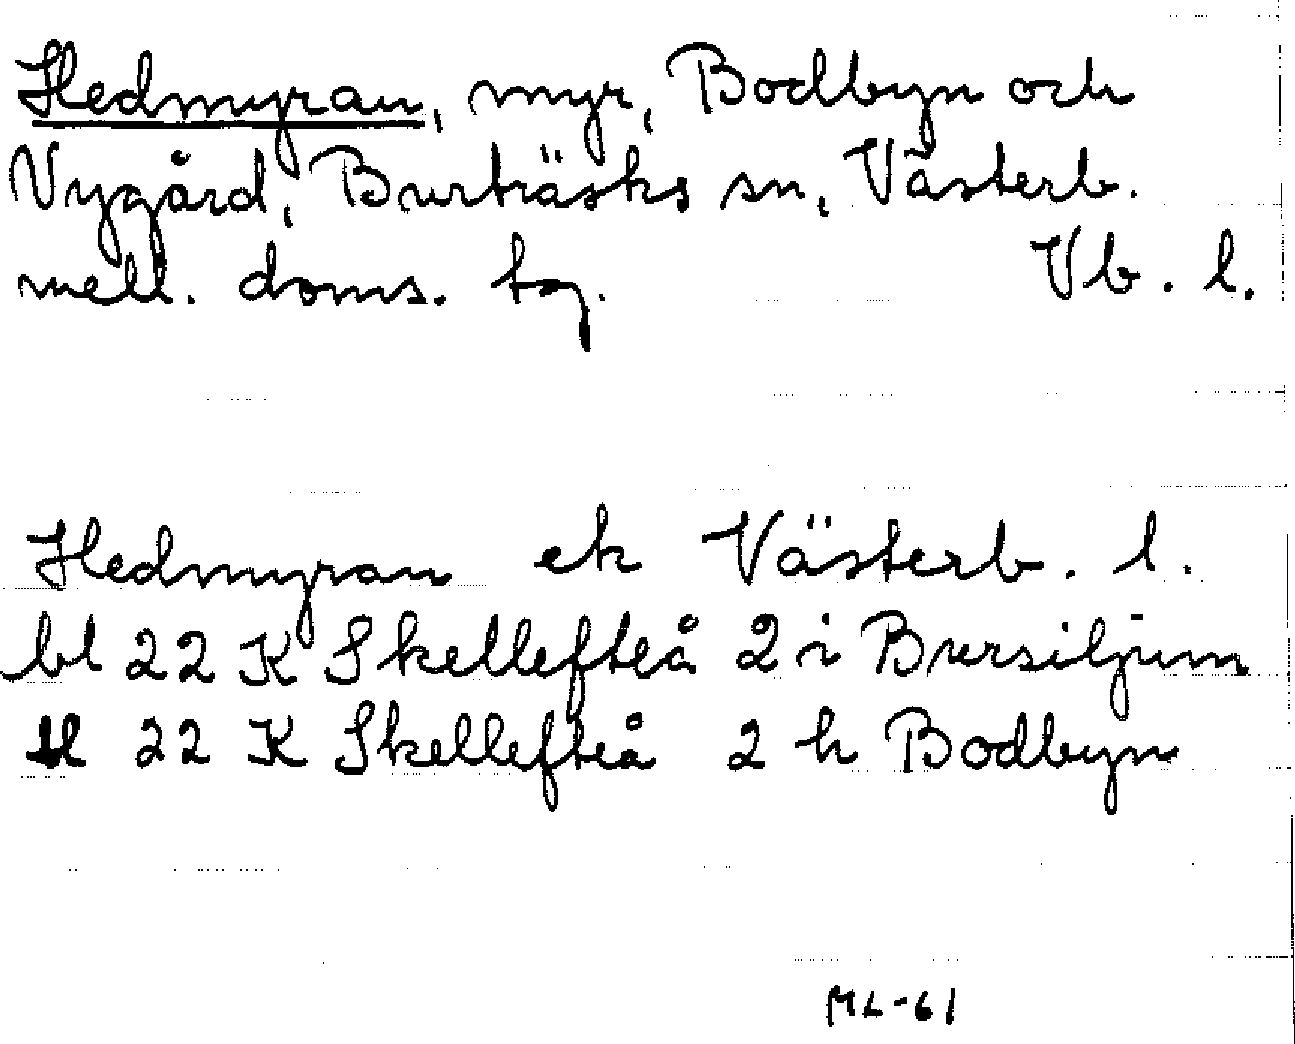 Hedmyran, myr, Bodbyn och
Vygård, Burträsks sn, Västerb.
mell. doms. tg. Vb. l.
Hedmyran ek Västerb. l.
bl 22 K Skellefteå 2 i Bursiljum
bl 22 K Skellefteå 2 h Bodbyn
ML-61